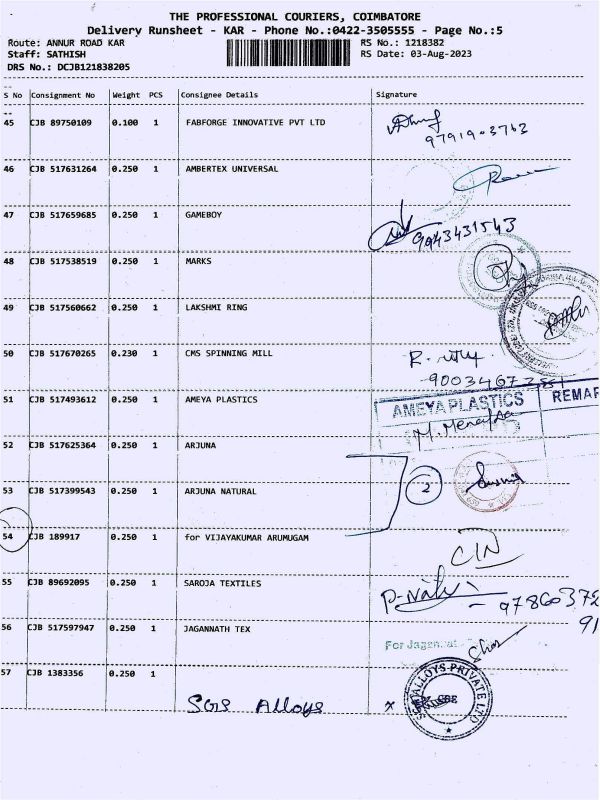 THE PROFESSIONAL COURIERS, COIMBATORE
Delivery Runsheet - KAR - Phone No.:0422-3505555 - Page No.:5
Route: ANNUR ROAD KAR RS No.: 1218382
Staff: SATHISH RS Date: 03-Aug-2023
DRS No.: DCJB121838205
S No Consignment No Weight PCS Consignee Details Signature
45 CJB 89750109 0.100 1 FABFORGE INNOVATIVE PVT LTD
9791903763
46 CJB 517631264 0.250 1 AMBERTEX UNIVERSAL
47 CJB 517659685 0.250 1 GAMEBOY
9943431543
48 CJB 517538519 0.250 1 MARKS
49 CJB 517560662 0.250 1 LAKSHMI RING
50 CJB 517670265 0.230 1 CMS SPINNING MILL
51 CJB 517493612 0.250 1 AMEYA PLASTICS
AMEYA PLASTICS REMAR
52 CJB 517625364 0.250 1 ARJUNA
53 CJB 517399543 0.250 1 ARJUNA NATURAL
2
54 CJB 189917 0.250 1 for VIJAYAKUMAR ARUMUGAM
55 CJB 89692095 0.250 1 SAROJA TEXTILES
97860372
91
56 CJB 517597947 0.250 1 JAGANNATH TEX
For Jagan
57 CJB 1383356 0.250 1
SGS Alloys x
ALLOYS PRIVATE LTD